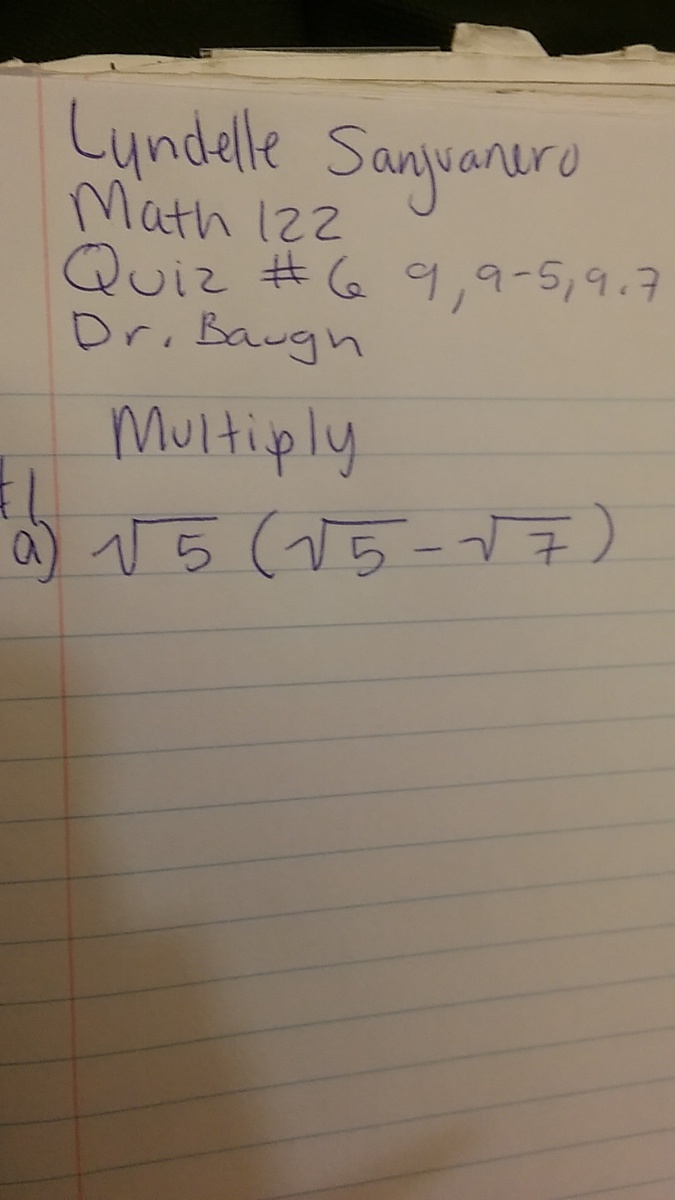 Lyndelle Sanjuanero
Math 122
Quiz #6 9, 9-5, 9.7
Dr. Baugh
Multiply
#1
a) √5 (√5 - √7)